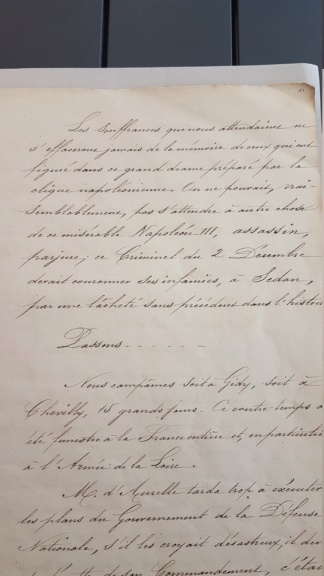 Les souffrances que nous attendaient ne
s'effaceront jamais de la mémoire de ceux qui ont
figuré dans ce grand drame préparé par la
clique napoléonienne. On ne pouvait, vrai-
semblablement, pas s'attendre à autre chose
de ce misérable Napoléon III, assassin,
parjure; ce Criminel du 2 Décembre
devait couronner ses infamies, à Sedan,
par une lâcheté sans précédent dans l'histoi
Passons - - - - - -
Nous campâmes soit à Gidy, soit à
Chevilly, 15 grands jours. Ce contre temps a
été funeste à la France entière et, en particulie
à l'Armée de la Loire.
M. d'Aurelle tarda trop à exécuter
les plans du Gouvernement de la Défense
Nationale, s'il les croyait désastreux, il de
de son Commandement, c'étai